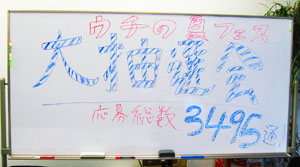 ウチの夏フェス
大抽選会
応募総数 3495通